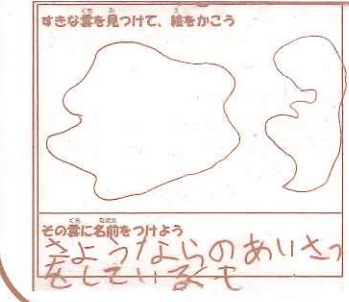 すきな雲を見つけて、絵をかこう
その雲に名前をつけよう
さようならのあいさつ
をしているくも